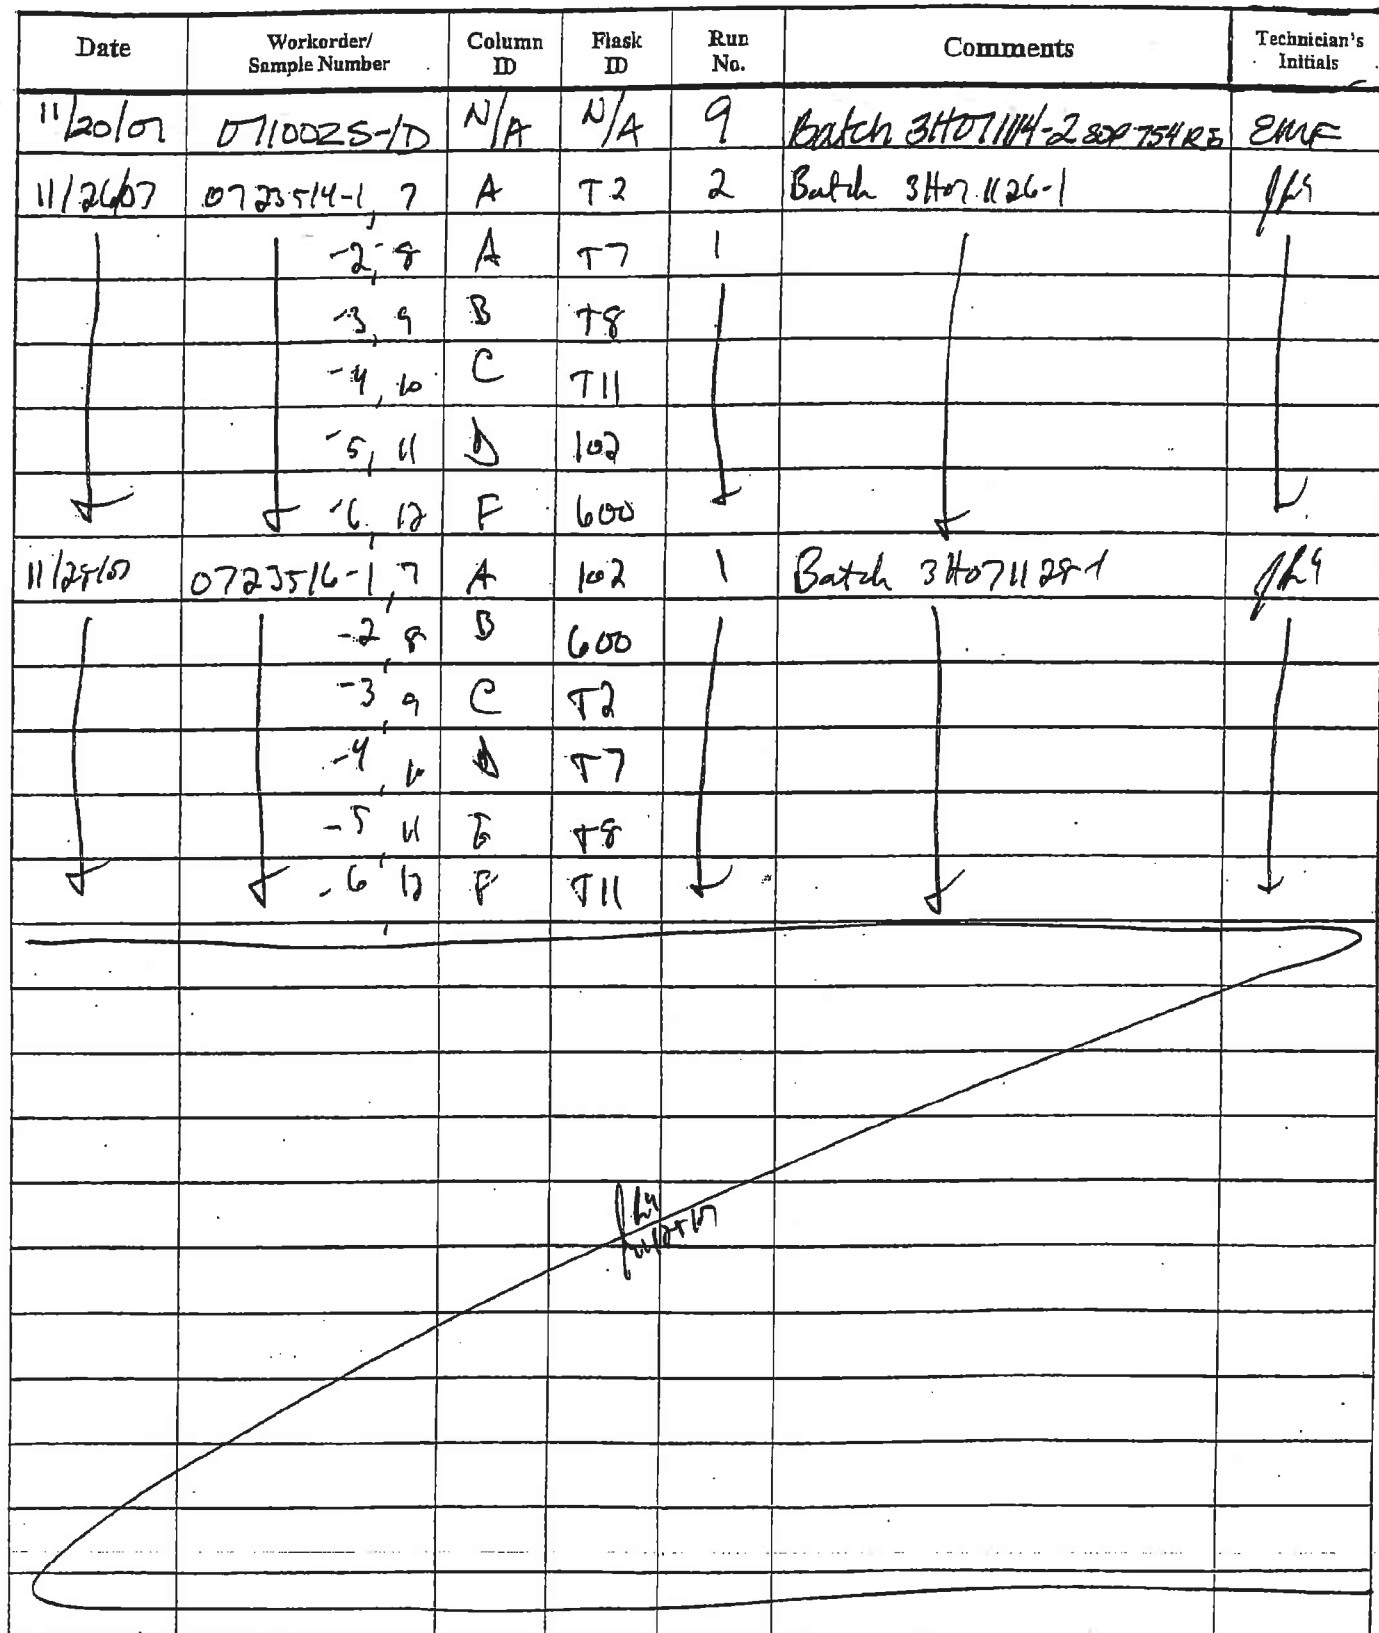 Date Workorder/ Sample Number Column ID Flask ID Run No. Comments Technician's Initials
11/20/07 0710025-1D N/A N/A 9 Batch 3H071114-2 SOP 754R8 EMF
11/26/07 0723514-1, 7 A T2 2 Batch 3H071126-1
-2, 8 A T7 1
-3, 9 B T8
-4, 10 C T11
-5, 11 D 102
-6, 12 F 600
11/28/07 0723516-1, 7 A 102 1 Batch 3H071128-1
-2, 8 B 600
-3, 9 C T2
-4, 10 D T7
-5, 11 E T8
-6, 12 F T11
11/28/07